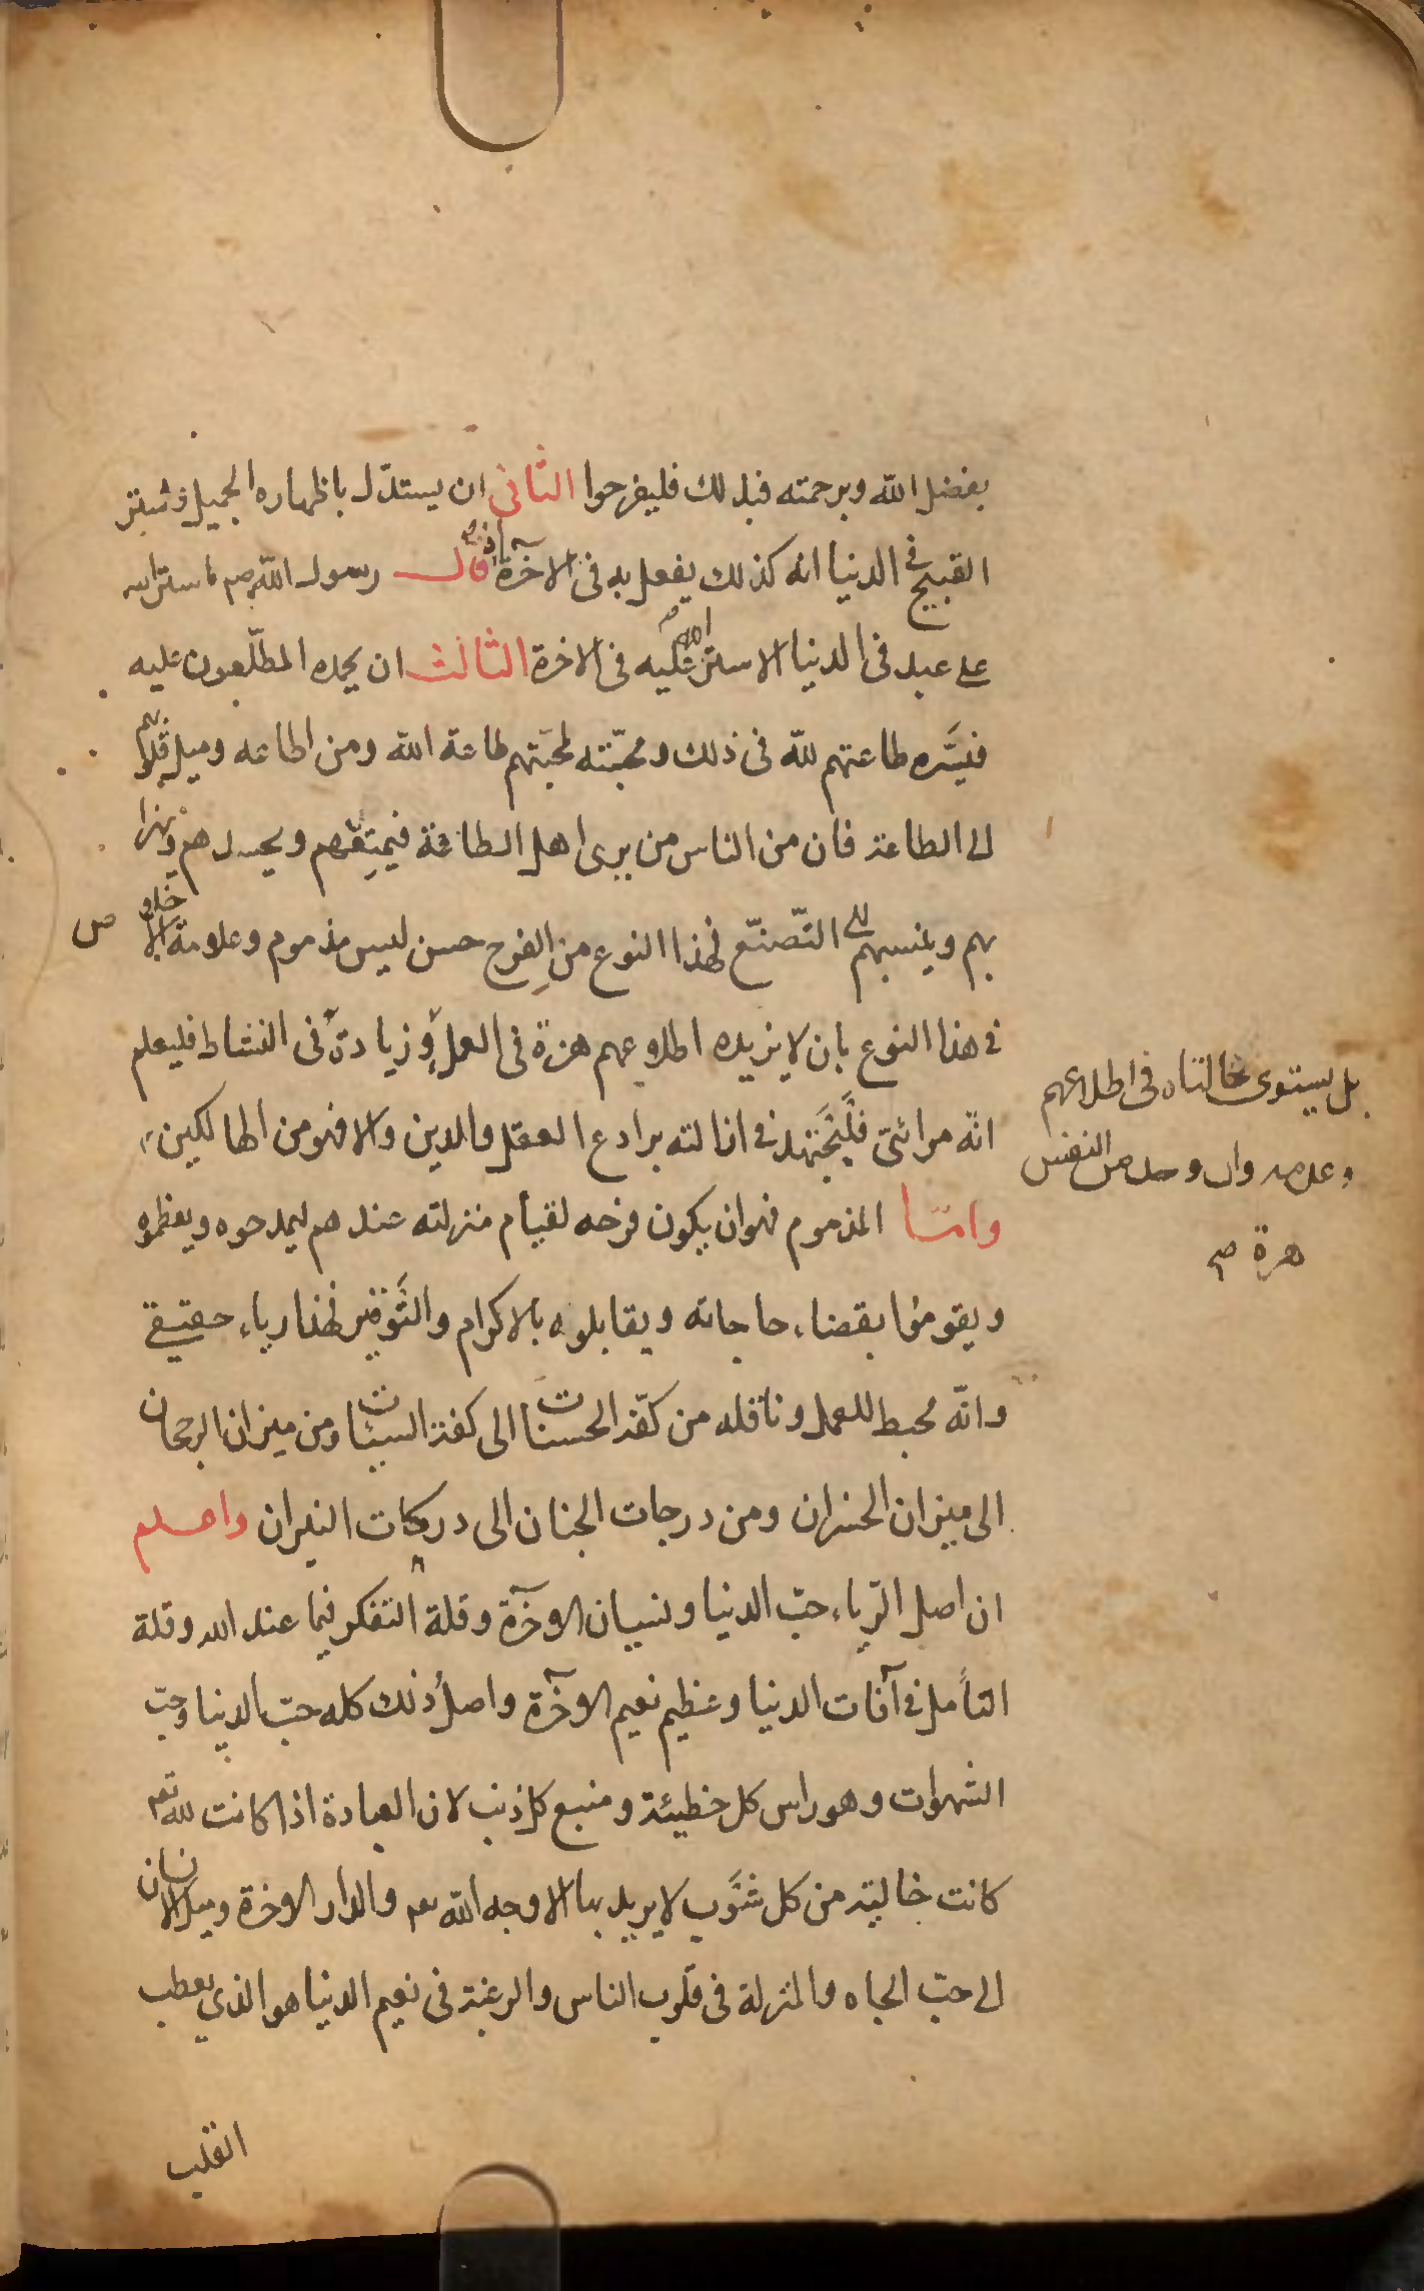 بفضل الله وبرحمته فبذلك فليفرحوا الثانى ان يستدل باظهاره الجميل وستر
القبيح فى الدنيا انه كذلك يفعل به فى الآخرة اذ قال رسول الله صم ما ستر الله
على عبد فى الدنيا الا ستر الله عليه فى الاخرة الثالث ان يحمده المطلّعون عليه
فيسَّره طاعتهم للّه فى ذلك ومحبّته لمحبّتهم طاعة الله ومن اطاعه وميل قلوبهم
الى الطاعة فان من الناس من يرى اهل الطاعة فيمقتهم ويحسدهم ويهزا
بهم وينسبهم الى التّصنّع فهذا النوع من الفرح حسن ليس مذموم وعلامة الاخلاص
فى هذا النوع بان لا يزيده اطلاعهم هزة فى العمل وزيادة فى النشاط فليعلم
انّه مرائى فليجتهد فى ازالته برادع العقل والدين والا فهو من الهالكين
وامّا المذموم فهو ان يكون فرحه لقيام منزلته عندهم ليمدحوه ويعظموه
ويقوموا بقضاء حاجاته ويقابلوه بالاكرام والتَّوقير فهذا رياء حقيقى
وانّه محبط للعمل وناقله من كفّة الحسنات الى كفة السيئات ومن ميزان الرجحان
الى ميزان الخسران ومن درجات الجنان الى دركات النيران واعلم
ان اصل الرّياء حبّ الدنيا ونسيان الآخرة وقلة التفكر فيما عند الله وقلة
التأمل فى آفات الدنيا وعظيم نعيم الآخرة واصل ذلك كله حبّ الدنيا وحبّ
الشهوات وهو راس كل خطيئة ومنبع كل ذنب لان العبادة اذا كانت لله تعم
كانت خالية من كل شَوب لا يريد بها الا وجه الله تعم والدار الاخرة وميل الانسان
الى حبّ الجاه والمنزلة فى قلوب الناس والرغبة فى نعيم الدنيا هو الذى يعطب
القلب
بل يستوى حالتاه فى اطلاعهم
وعدمه وان وجد من النفس
هزة صح